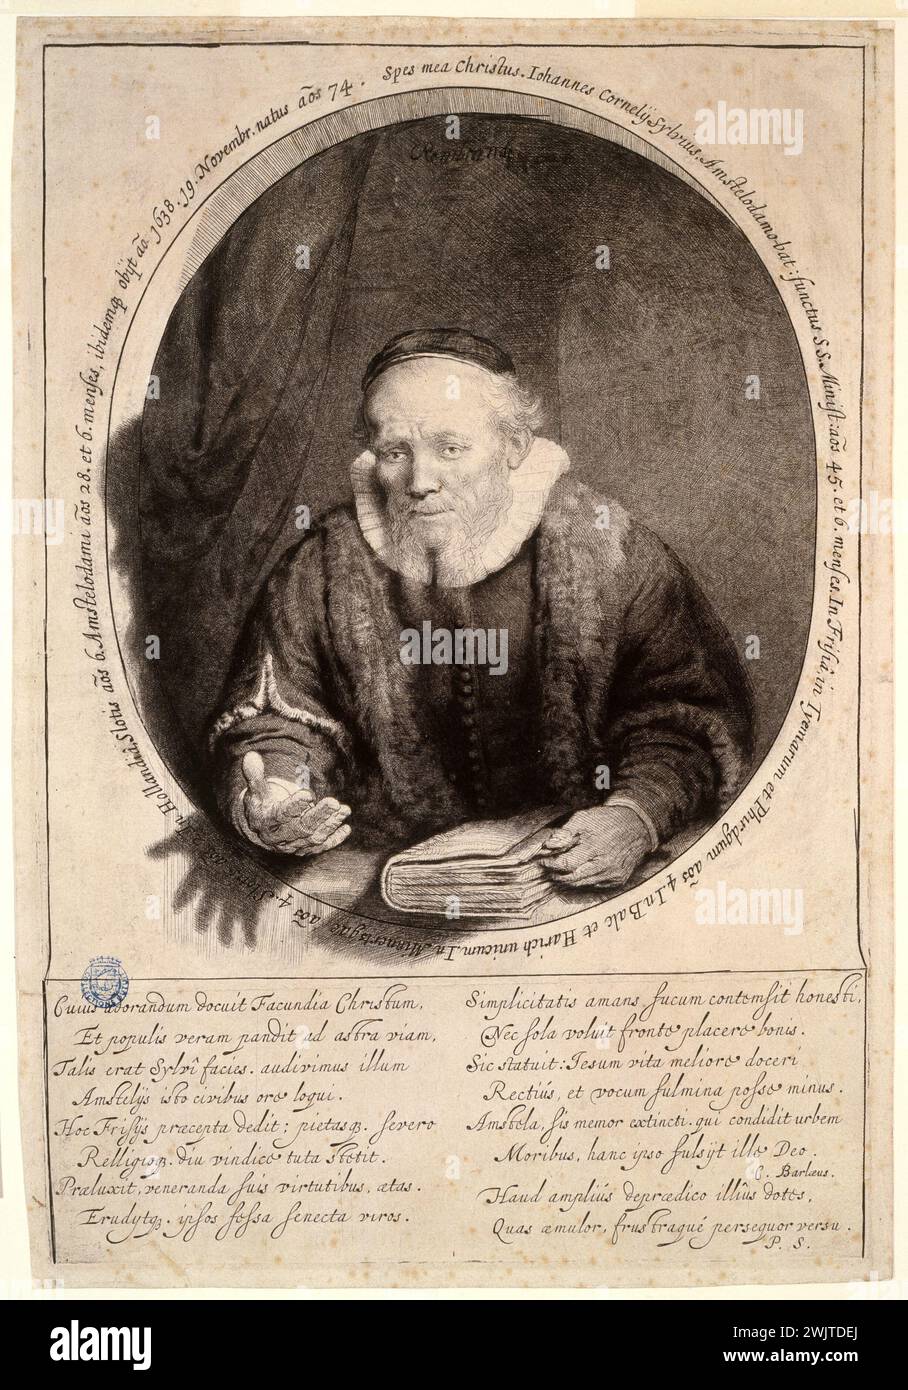 Spes mea Christus. Iohannes Cornelij Sylvius, Amstelodamo-bat: functus S.S. Minist: aōs 45. et 6. menses. In Frisiâ, in Tyenarum et Phirdgum aōs 4. In Balc et Harich unicum. In Minnertsgae aōs 4. Slotis In Hollandiâ, Slotis aōs 6. Amstelodami aōs 28. et 6. menses, ibidemq3 obijt aō. 1638. 19. Novembr. natus aōs 74.
Rembrandt
Cuius adorandum docuit Facundia Christum,
Et populis veram pandit ad astra viam,
Talis erat Sylvî facies. audivimus illum
Amstelijs isto civibus ore loqui.
Hoc Frisijs præcepta dedit; pietasq3. severo
Relligioq3. diu vindice tuta stetit.
Præluxit, veneranda suis virtutibus, ætas.
Erudytq3. ipsos fessa senecta viros.
Simplicitatis amans fucum contemsit honesti,
Nec sola voluit fronte placere bonis.
Sic statuit: Iesum vita meliore doceri
Rectiús, et vocum fulmina posse minus.
Amstela, sis memor extincti. qui condidit urbem
Moribus, hanc ipso fulsijt ille Deo.
C. Barlæus.
Haud ampliús deprædico illîus dotes,
Quas æmulor, frustraqué persequor versu.
P. S.
alamy
a
Image ID: 2WJTDEJ
www.alamy.com